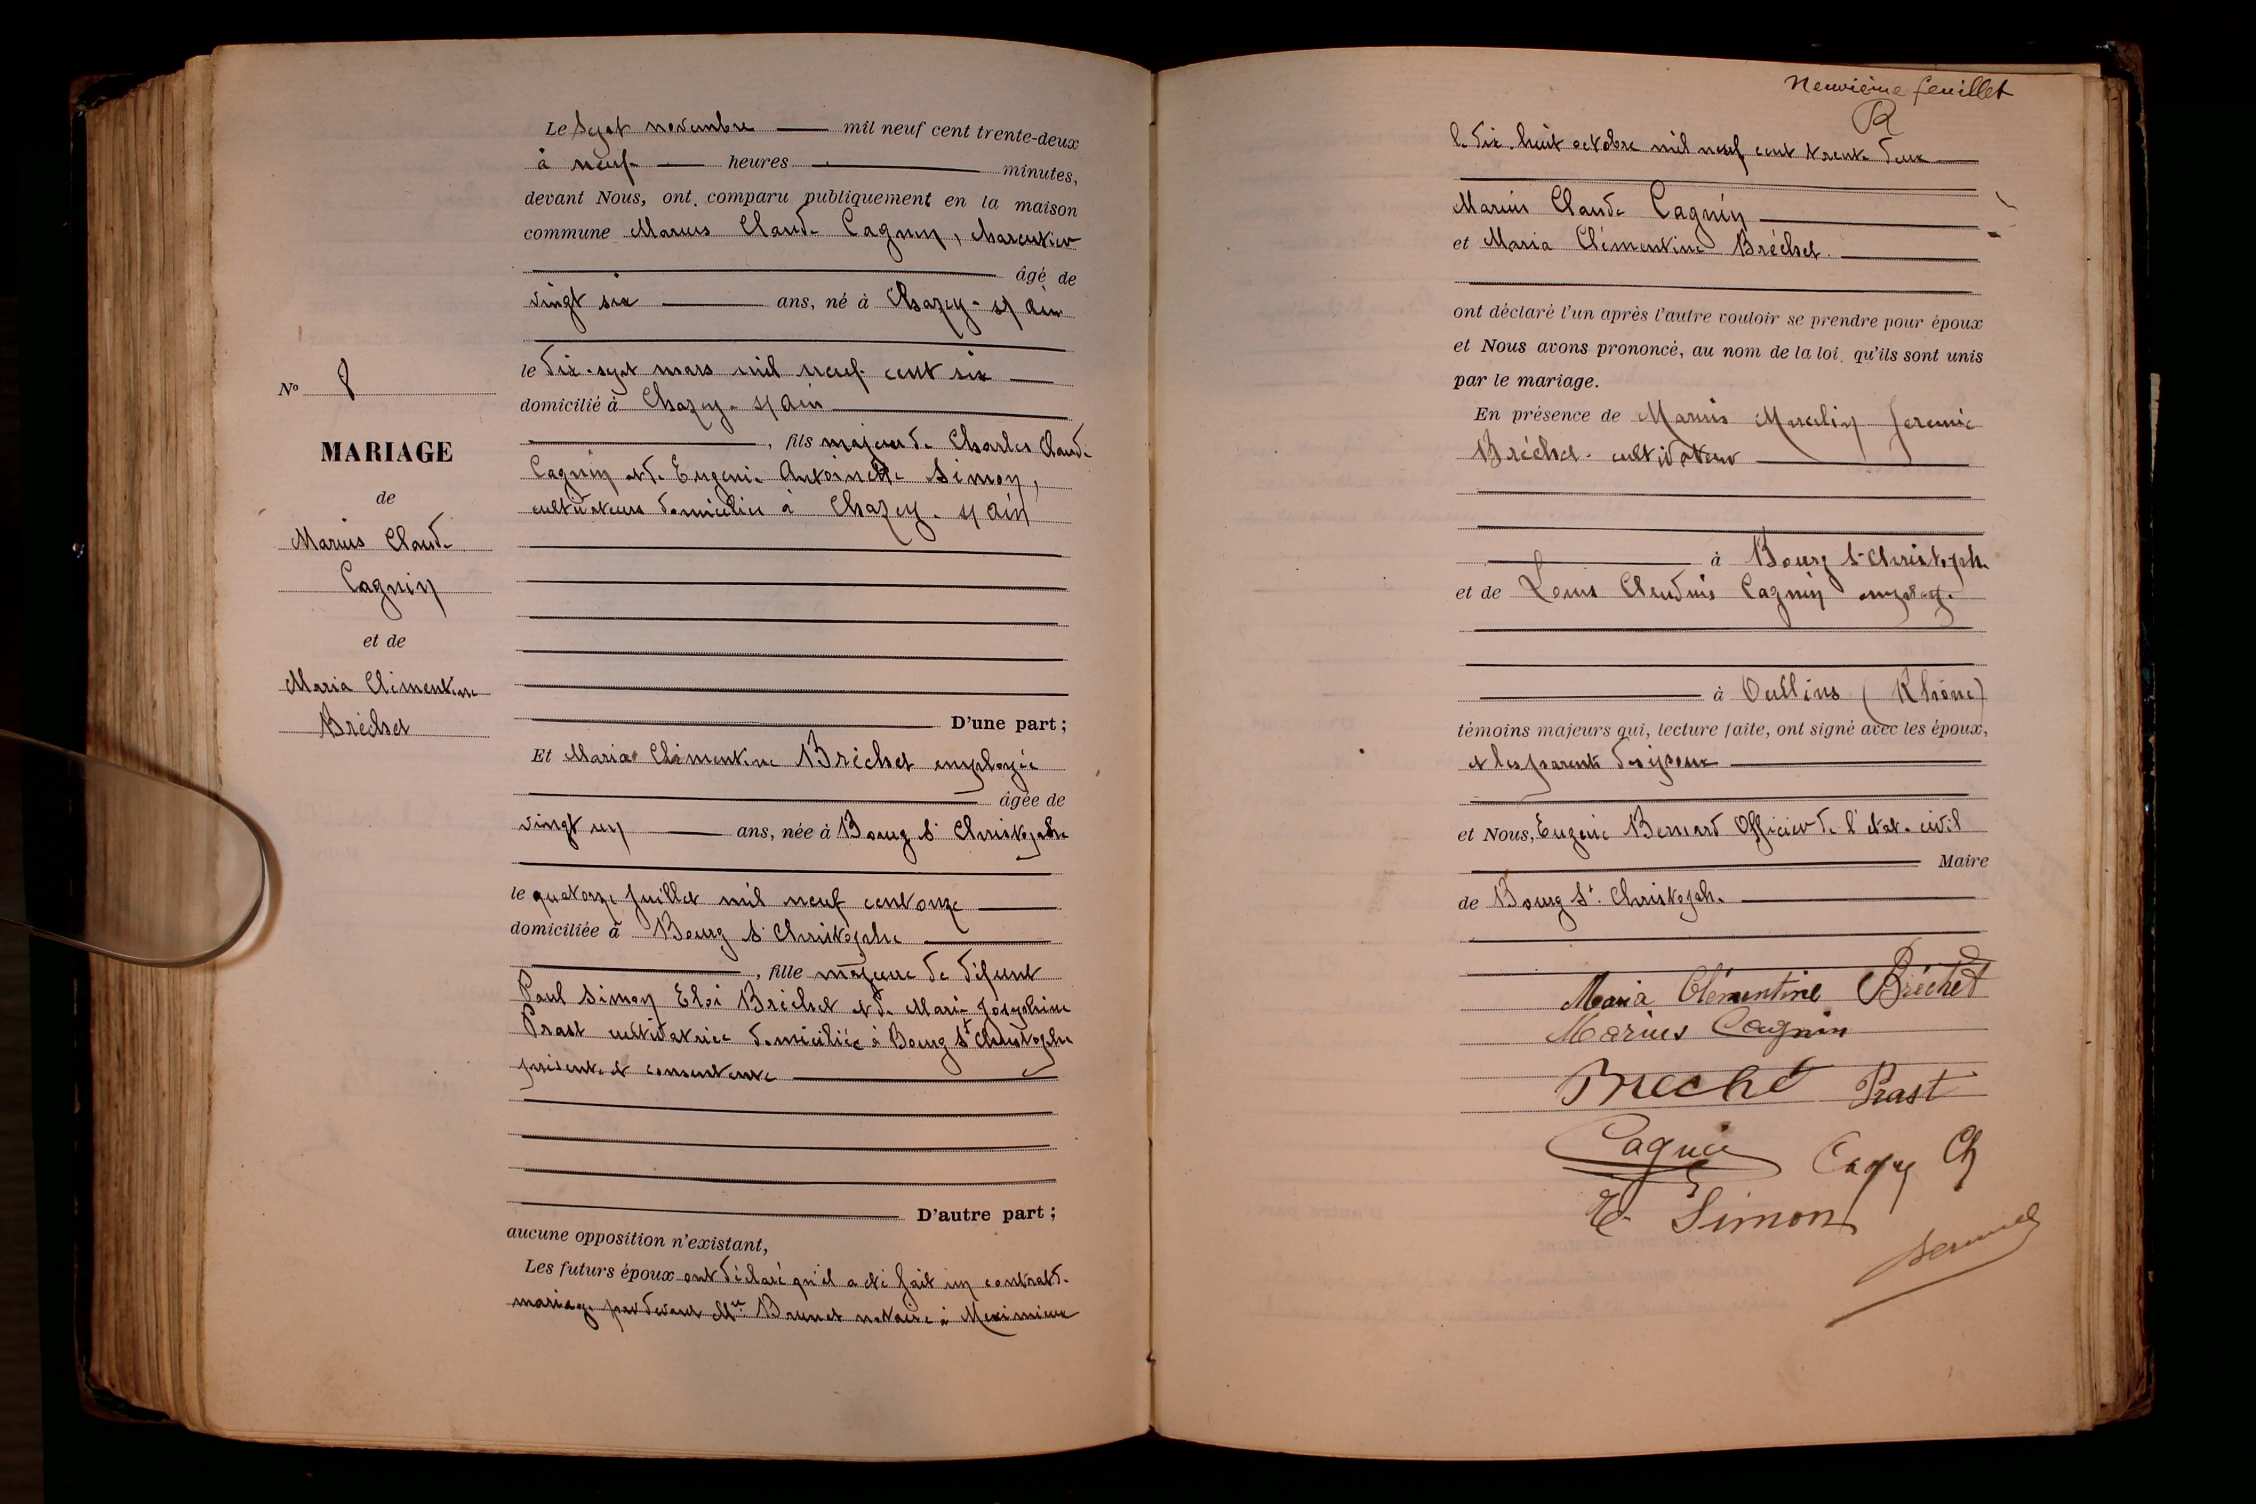 Le Sept novembre mil neuf cent trente-deux
à neuf heures minutes,
devant Nous, ont comparu publiquement en la maison
commune Marius Claude Cagnin, charcutier
âgé de
vingt six ans, né à Chazey-s/ Ain
le dix-sept mars mil neuf cent six
domicilié à Chazey-s/ Ain
, fils majeur de Charles Claude
Cagnin et de Eugenie Antoinette Simon,
cultivateurs domiciliés à Chazey-s/ Ain
D'une part ;
Nº 8
MARIAGE
de
Marius Claude
Cagnin
et de
Maria Clémentine
Bréchet
Et Maria Clémentine Bréchet employée
âgée de
vingt un ans, née à Bourg St Christophe
le quatorze juillet mil neuf cent onze
domiciliée à Bourg St Christophe
, fille majeure de défunt
Paul Simon Eloi Bréchet et de Marie Joséphine
Prast cultivatrice domiciliée à Bourg St Christophe
présente et consentante
D'autre part ;
aucune opposition n'existant,
Les futurs époux ont déclaré qu'il a été fait un contrat de
mariage par devant Me Brunet notaire à Meximieux
Neuvième feuillet
le dix-huit octobre mil neuf cent trente deux
Marius Claude Cagnin
et Maria Clémentine Bréchet
ont déclaré l'un après l'autre vouloir se prendre pour époux
et Nous avons prononcé, au nom de la loi, qu'ils sont unis
par le mariage.
En présence de Marius Marcelin Jeremie
Bréchet cultivateur
à Bourg St Christophe
et de Louis Claudius Cagnin employé
à Oullins (Rhône)
témoins majeurs qui, lecture faite, ont signé avec les époux,
et les parents des époux
et Nous, Eugène Bernard Officier de l'état-civil
Maire
de Bourg St Christophe
Maria Clémentine Bréchet
Marius Cagnin
Breché Prast
Cagnin Cagn Ch
E. Simon
Bernard